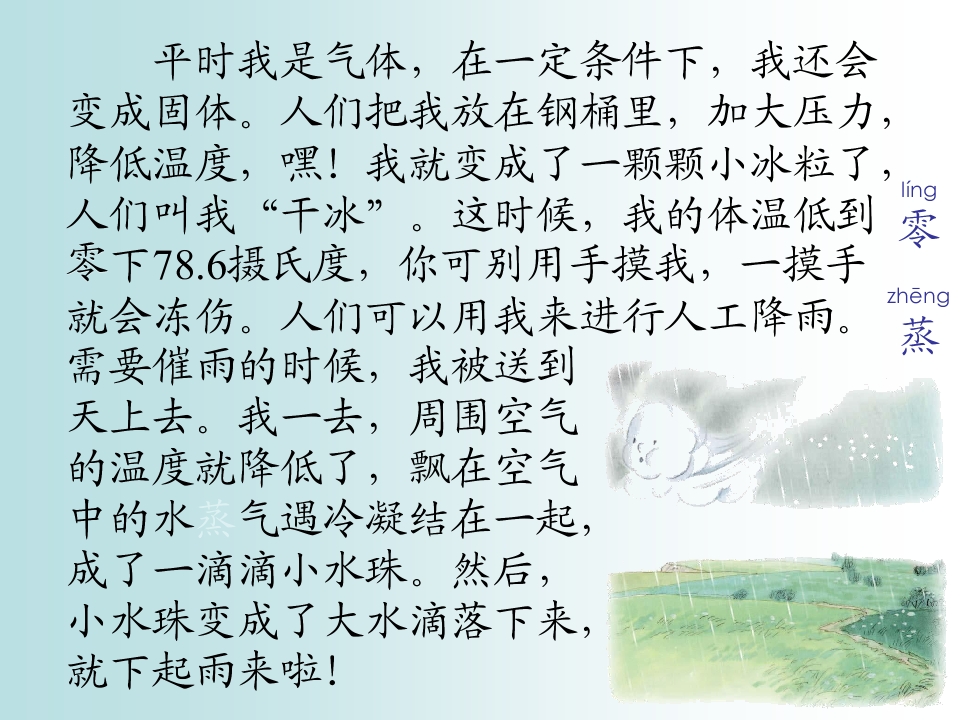 平时我是气体，在一定条件下，我还会
变成固体。人们把我放在钢桶里，加大压力，
降低温度，嘿！我就变成了一颗颗小冰粒了，
人们叫我“干冰”。这时候，我的体温低到
零下78.6摄氏度，你可别用手摸我，一摸手
就会冻伤。人们可以用我来进行人工降雨。
需要催雨的时候，我被送到
天上去。我一去，周围空气
的温度就降低了，飘在空气
中的水蒸气遇冷凝结在一起，
成了一滴滴小水珠。然后，
小水珠变成了大水滴落下来，
就下起雨来啦！
líng
零
zhēng
蒸